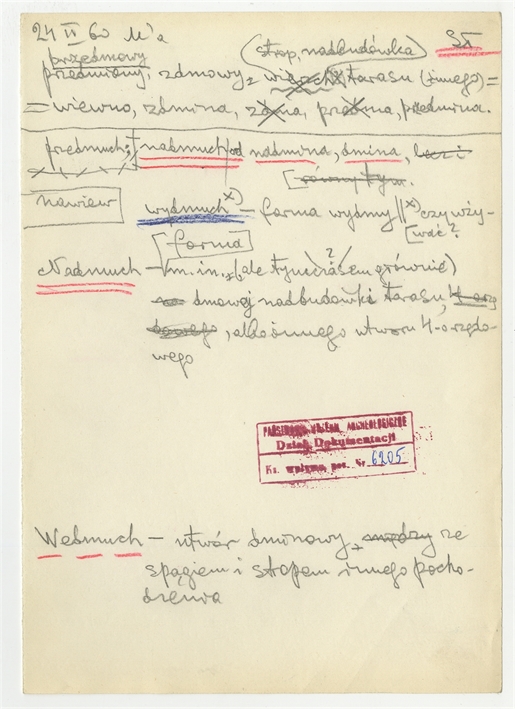 24 IV 60 M'a
przedmowy (strop, nadbudówka)
przedmiany, zdmowy, tarasu (innego) =
= wiewno, zdmina, zdma, przedma, przedmina.
przedmuch; nadmuch od nadmina, dmina,
równy tym.
nawiew wydmuch x) – forma wydmy || x) czy uży-
wać?
forma
Nadmuch – m.in. (ale tymczasem głównie) ?
dmowej nadbudówki tarasu,
, albo innego utworu 4-o rzędo-
wego
PAŃSTWOWE MUZEUM ARCHEOLOGICZNE
Dział Dokumentacji
Ks. wpływu, poz. Nr 6205
Wedmuch – utwór dminowy, między ze
spągiem i stropem innego pocho-
dzenia